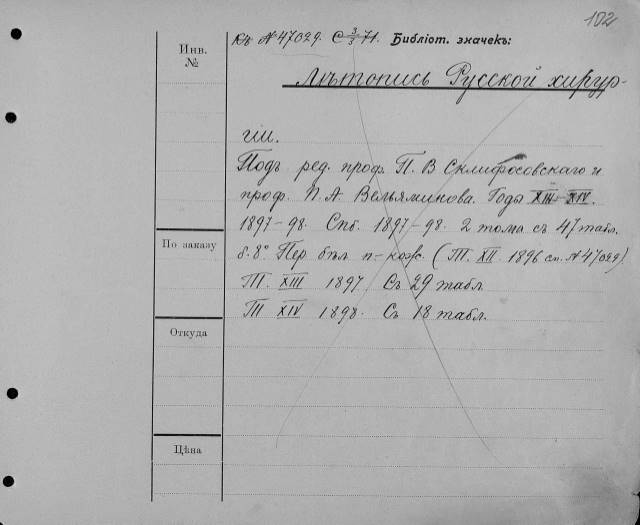 102
Къ № 47029. С 3/3 71. Библіот. значекъ:
Инв.
№
Лѣтопись Русской хирур-
гіи.
Подъ ред. проф. Н. В Склифосовскаго и
проф. Н. А. Вельяминова. Годы XIII–XIV.
1897–98. Спб. 1897–98. 2 тома съ 47 табл.
б. 8º. Пер бѣл п-кож. (Т. XII. 1896 см. № 47029).
По заказу
Т. XIII 1897. Съ 29 табл
Т XIV 1898. Съ 18 табл.
Откуда
Цѣна